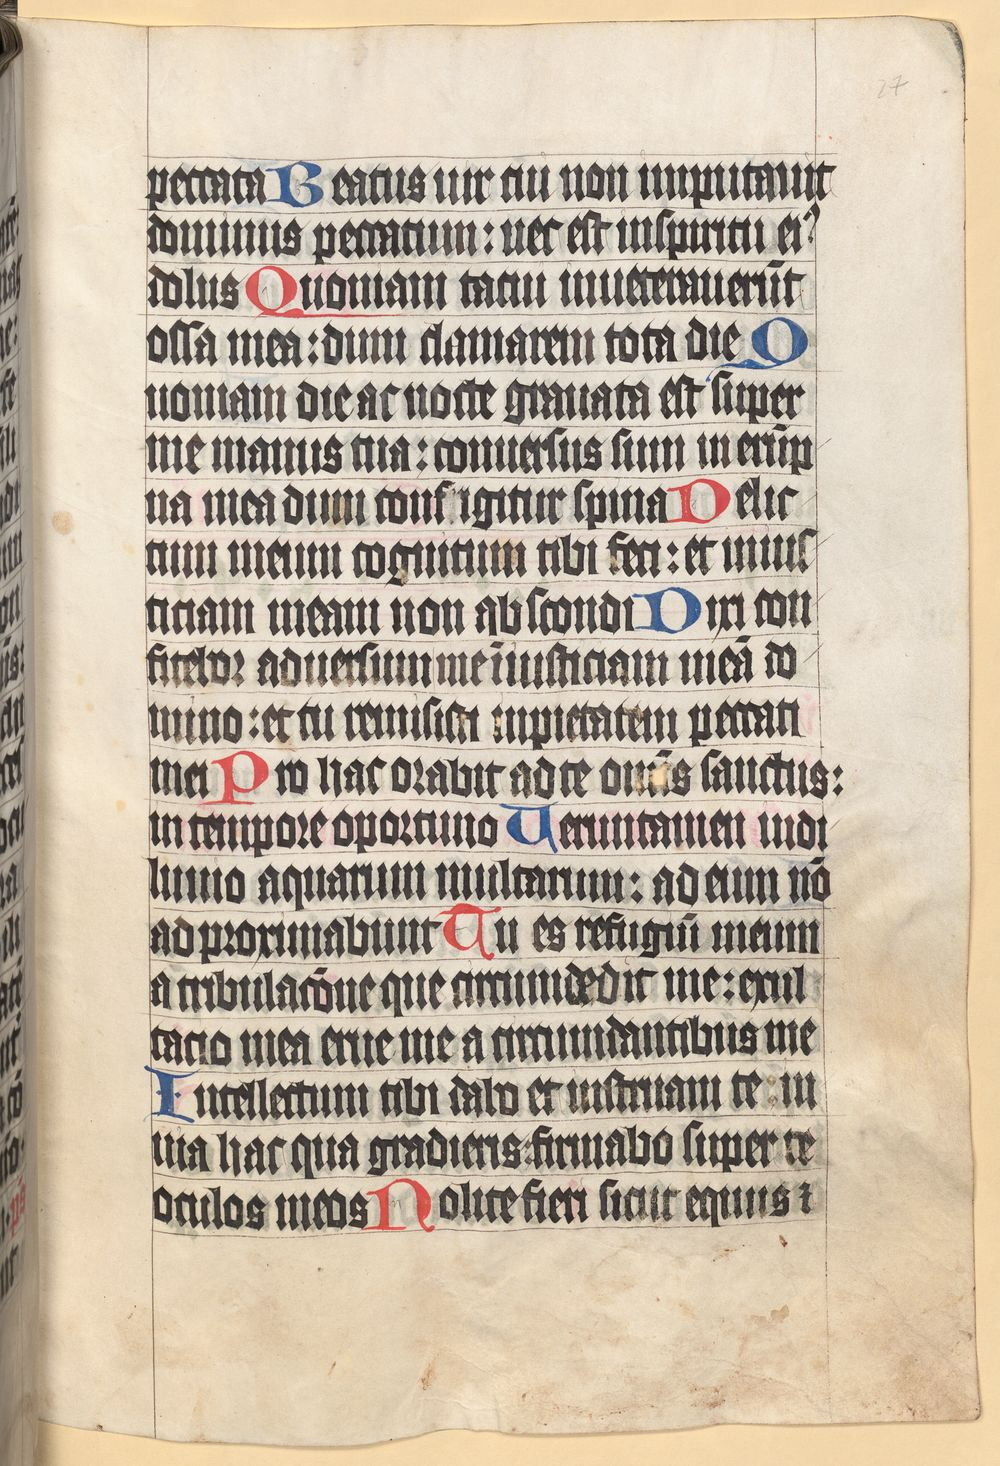 27
peccata Beatus uir cui non imputauit
dominus peccatum: nec est inspiritu ei⁹
dolus Quoniam tacui inueterauerūt
ossa mea: dum clamarem tota die Q
uoniam die ac nocte grauata est super
me manus tua: conuersus sum in erūp
na mea dum configitur spina Delic
tum meum cognitum tibi feci: et inius
ticiam meam non abscondi Dixi con
fitebor aduersum me īiusticiam meā do
mino: et tu remisisti inpietatem peccati
mei Pro hac orabit ad te omīs sanctus:
in tempore oportuno Ueruntamen indi
luuio aquarum multarum: ad eum nō
ad proximabunt Tu es refugiū meum
a tribulacōne que circumdedit me: exul
tacio mea erue me a circumdantibus me
Intellectum tibi dabo et instruam te in
uia hac qua gradieris: firmabo super te
oculos meos Nolite fieri sicut equus ⁊